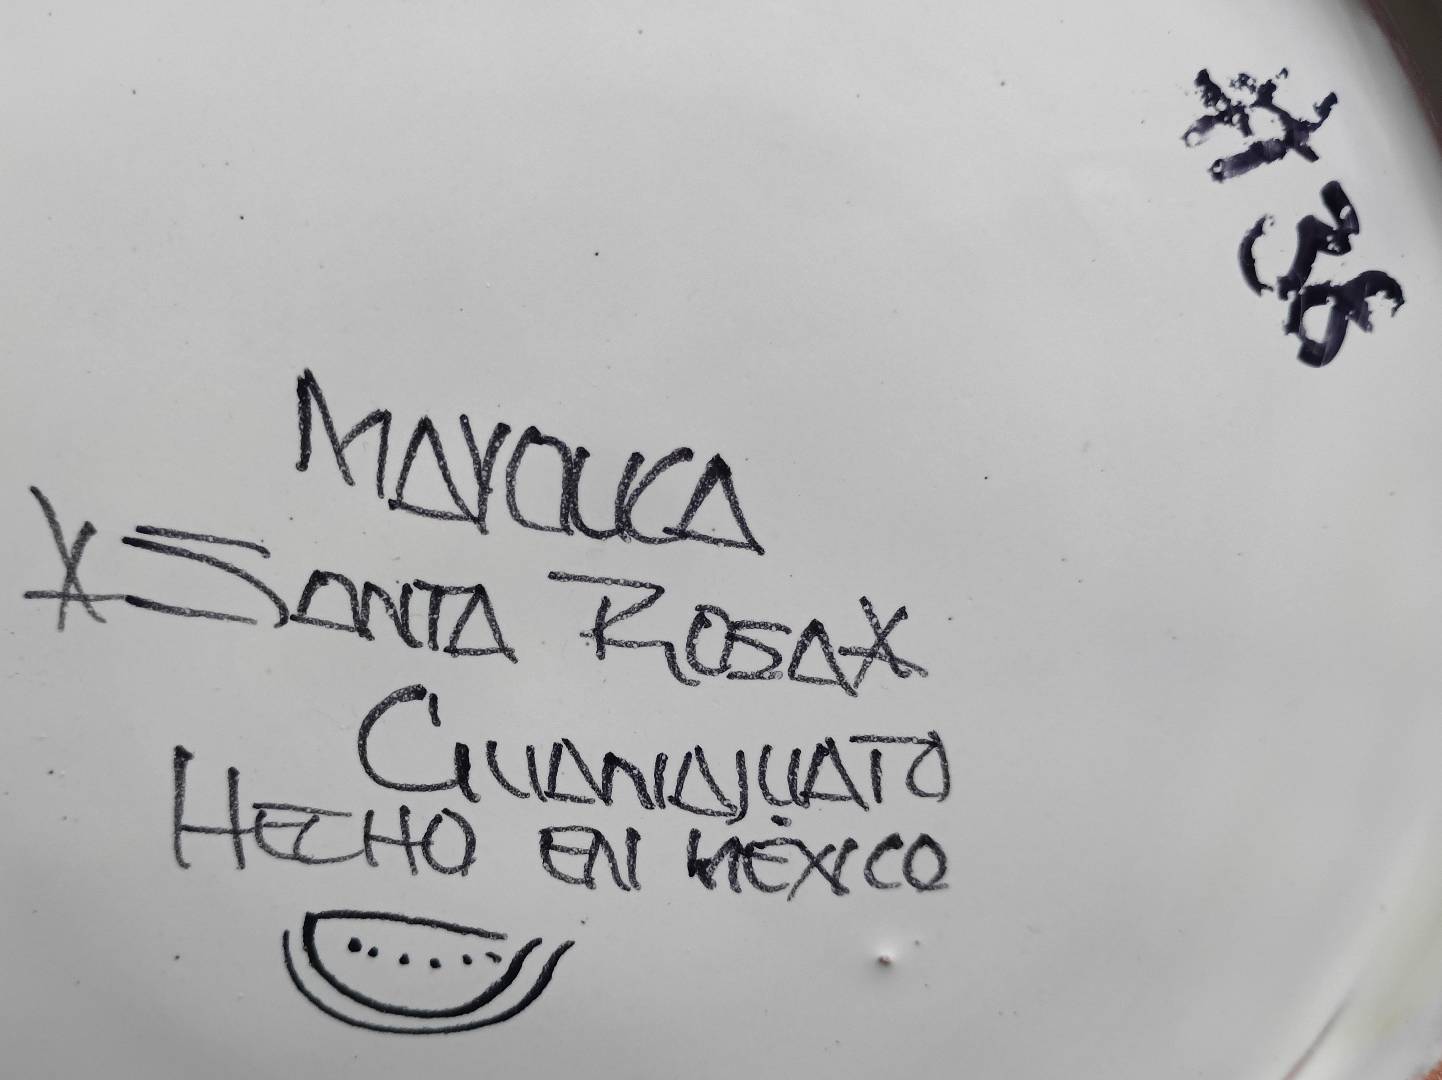 #38
MAYOLICA
X SANTA ROSA X
GUANAJUATO
HECHO EN MÉXICO